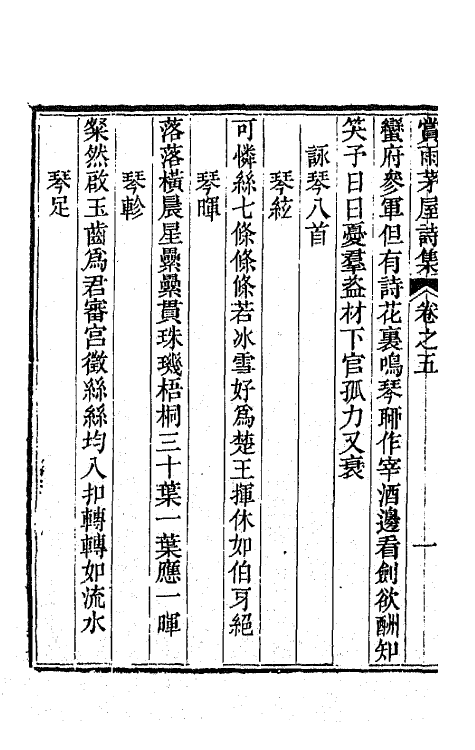 賞雨茅屋詩集 卷之五 一
蠻府參軍但有詩花裏鳴琴聊作宰酒邊看劍欲酬知
笑予日日憂羣盜材下官孤力又衰
詠琴八首
琴絃
可憐絲七條條條若冰雪好爲楚王揮休如伯牙絕
琴暉
落落橫晨星纍纍貫珠璣梧桐三十葉一葉應一暉
琴軫
粲然啟玉齒爲君審宮徵絲絲均入扣轉轉如流水
琴足